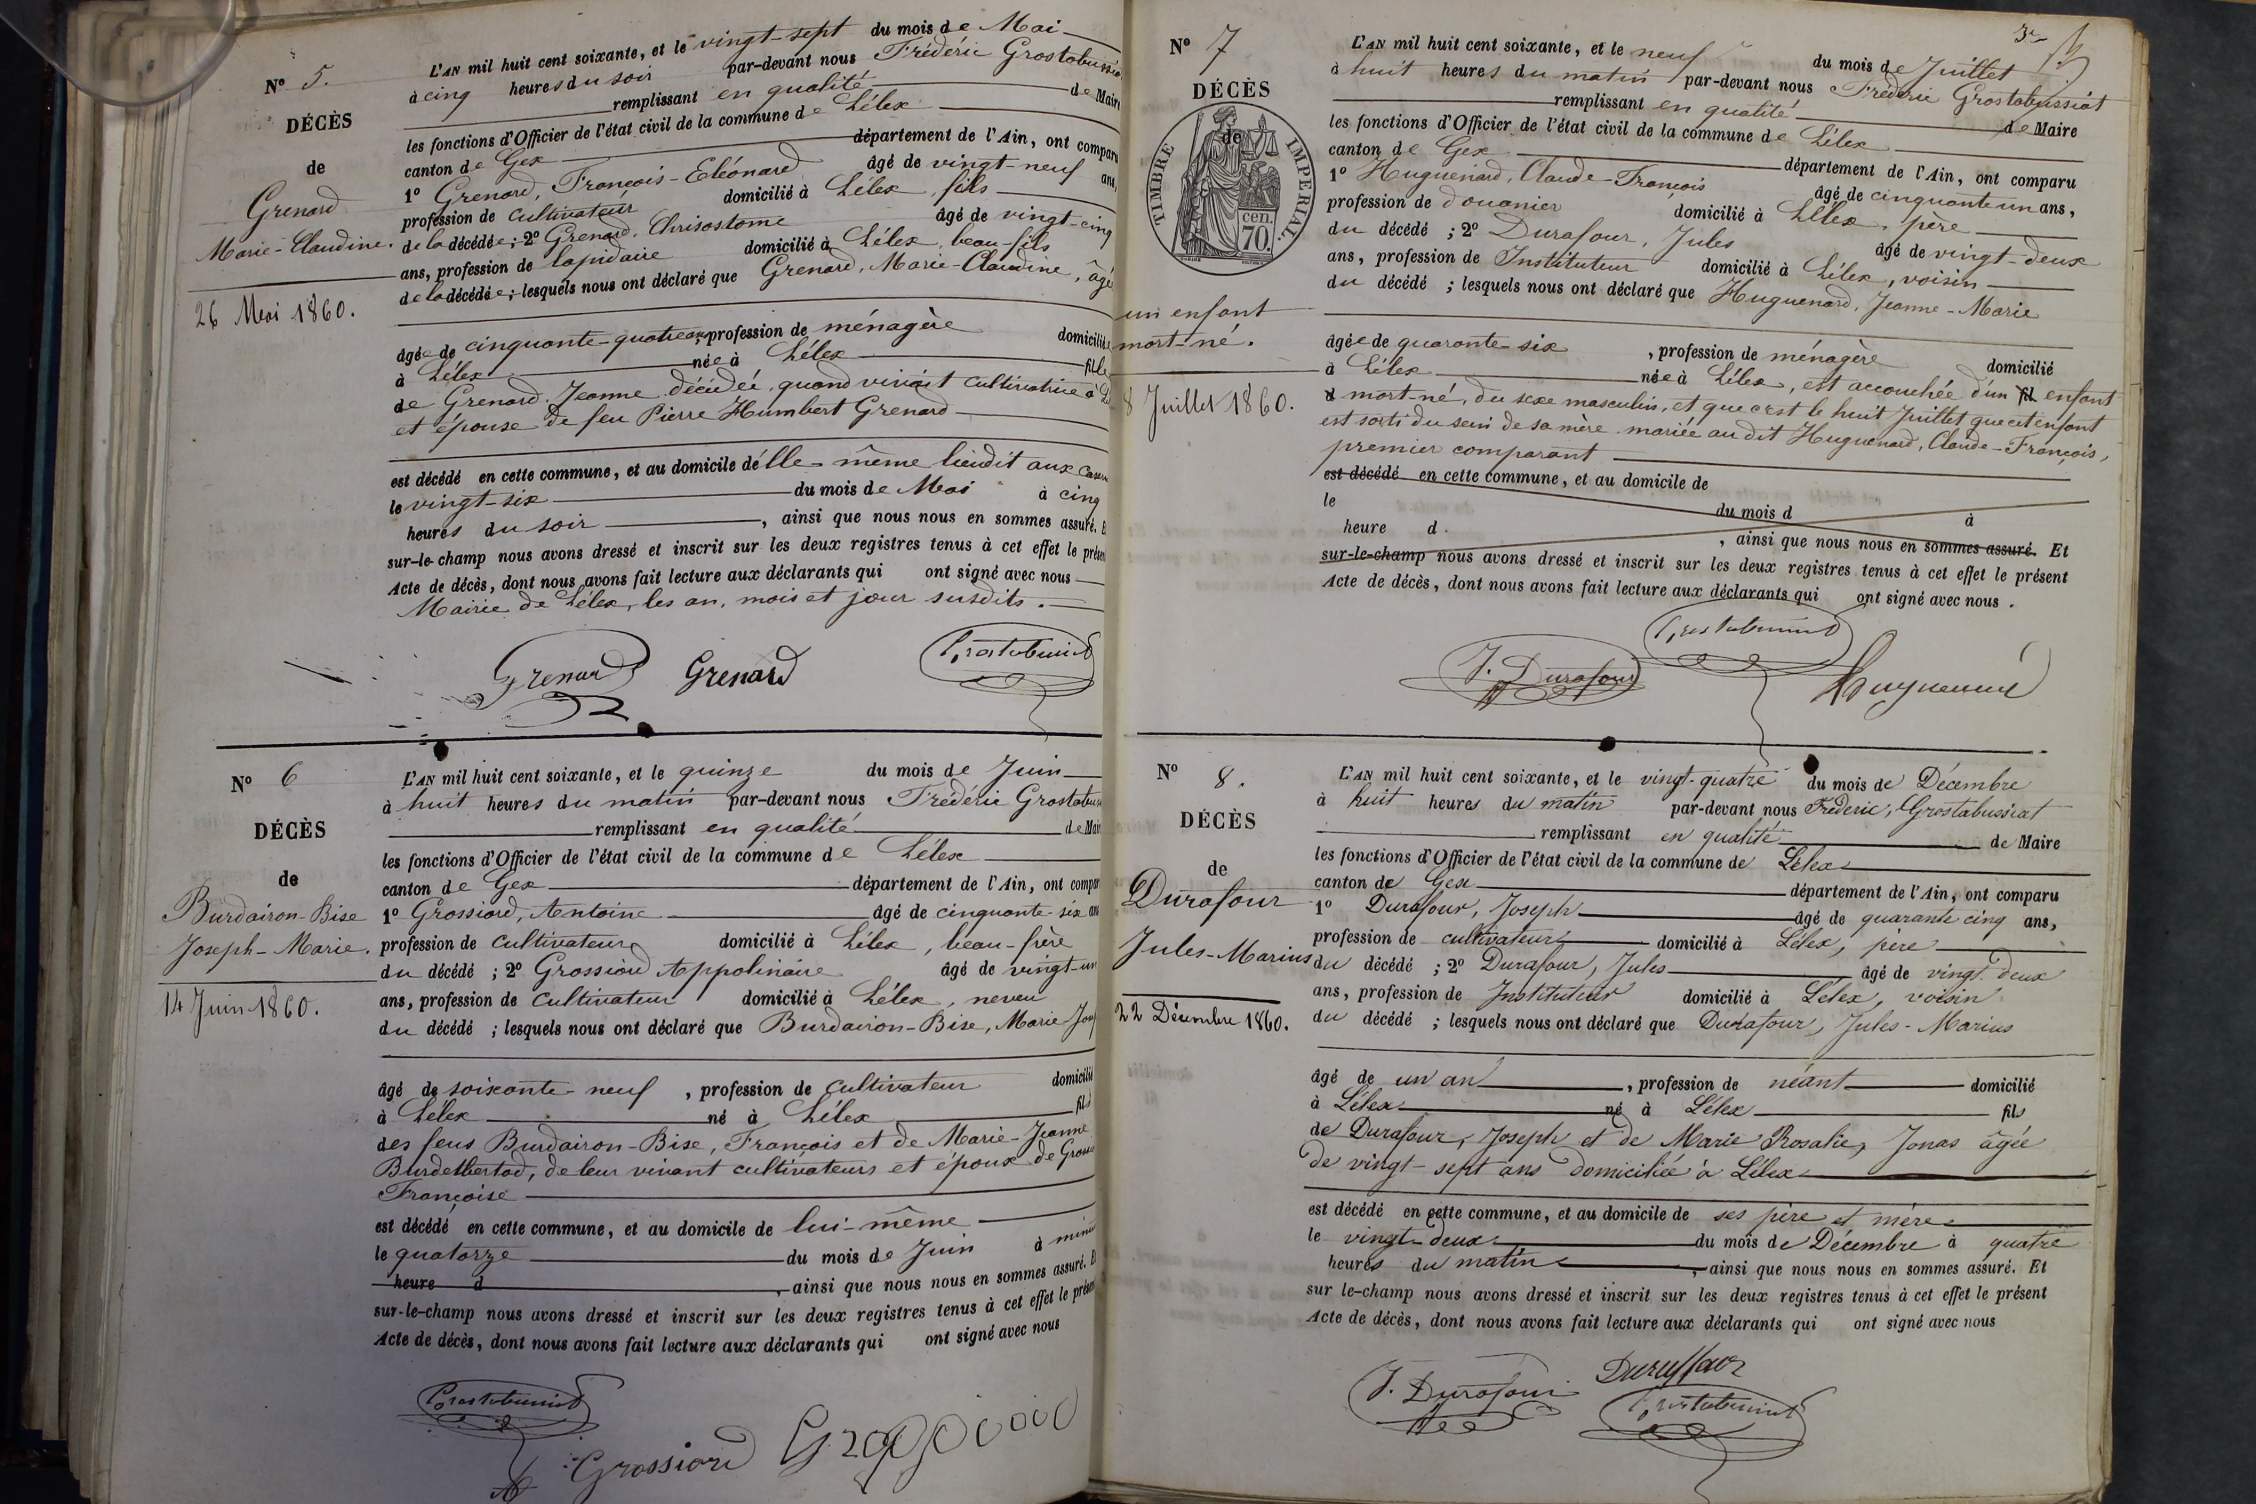 N° 5.
DÉCÈS
de
Grenard
Marie-Claudine.
26 Mai 1860.
L'AN mil huit cent soixante, et le vingt-sept du mois de Mai
à cinq heures du soir par-devant nous Frédéric Grostabussia
remplissant en qualité de Maire
les fonctions d'Officier de l'état civil de la commune de Lélex
canton de Gex département de l'Ain, ont comparu
1° Grenard, François-Eléonard âgé de vingt-neuf ans,
profession de cultivateur domicilié à Lélex, fils
de la décédée; 2° Grenard, Chrisostome âgé de vingt-cinq
ans, profession de lapidaire domicilié à Lélex, beau-fils
de la décédée; lesquels nous ont déclaré que Grenard, Marie-Claudine, âgé
âgée de cinquante-quatre ans, profession de ménagère domicilié
à Lélex née à Lélex fille
de Grenard Jeanne décédée, quand vivait cultivatrice à
et épouse de feu Pierre Humbert Grenard
est décédé en cette commune, et au domicile d'elle-même lieudit aux
le vingt-six du mois de Mai à cinq
heures du soir, ainsi que nous nous en sommes assuré. E
sur-le-champ nous avons dressé et inscrit sur les deux registres tenus à cet effet le présen
Acte de décès, dont nous avons fait lecture aux déclarants qui ont signé avec nous
Mairie de Lélex, les an, mois et jour susdits.
Grenard Grenard Grostabussiat
N° 6
DÉCÈS
de
Burdairon-Bise
Joseph-Marie.
14 Juin 1860.
L'AN mil huit cent soixante, et le quinze du mois de Juin
à huit heures du matin par-devant nous Frédéric Grostabus
remplissant en qualité de Mair
les fonctions d'Officier de l'état civil de la commune de Lélex
canton de Gex département de l'Ain, ont compar
1° Grossiord, Antoine âgé de cinquante-six ans
profession de cultivateur domicilié à Lélex, beau-frère
du décédé; 2° Grossiord Appolinaire âgé de vingt-un
ans, profession de cultivateur domicilié à Lélex, neveu
du décédé; lesquels nous ont déclaré que Burdairon-Bise, Marie Jos
âgé de soixante-neuf, profession de cultivateur domicilié
à Lélex né à Lélex fils
des feus Burdairon-Bise, François et de Marie-Jeanne
Burdetbertod, de leur vivant cultivateurs et époux de Gross
Françoise
est décédé en cette commune, et au domicile de lui-même
le quatorze du mois de Juin à minu
heure d, ainsi que nous nous en sommes assuré. E
sur-le-champ nous avons dressé et inscrit sur les deux registres tenus à cet effet le présen
Acte de décès, dont nous avons fait lecture aux déclarants qui ont signé avec nous
Grostabussiat
Grossiord
3e
N° 7
DÉCÈS
de
TIMBRE IMPERIAL.
cen.
70.
un enfant
mort-né.
8 Juillet 1860.
L'AN mil huit cent soixante, et le neuf du mois de Juillet
à huit heures du matin par-devant nous Fréderic Grostabussiat
remplissant en qualité de Maire
les fonctions d'Officier de l'état civil de la commune de Lélex
canton de Gex département de l'Ain, ont comparu
1° Huguenard, Claude-François âgé de cinquante un ans,
profession de douanier domicilié à Lélex, père
du décédé; 2° Durafour, Jules âgé de vingt-deux
ans, profession de Instituteur domicilié à Lélex, voisin
du décédé; lesquels nous ont déclaré que Huguenard, Jeanne-Marie
âgée de quarante-six, profession de ménagère domicilié
à Lélex née à Lélex, est accouchée d'un fil enfant
d mort-né, du sexe masculin, et que c'est le huit Juillet que cet enfant
est sorti du sein de sa mère mariée au dit Huguenard, Claude-François,
premier comparant
est décédé en cette commune, et au domicile de
le du mois d à
heure d, ainsi que nous nous en sommes assuré. Et
sur-le-champ nous avons dressé et inscrit sur les deux registres tenus à cet effet le présent
Acte de décès, dont nous avons fait lecture aux déclarants qui ont signé avec nous.
Grostabussiat
J. Durafour Huguenard
N° 8.
DÉCÈS
de
Durafour
Jules-Marius
22 Décembre 1860.
L'AN mil huit cent soixante, et le vingt-quatre du mois de Décembre
à huit heures du matin par-devant nous Fréderic, Grostabussiat
remplissant en qualité de Maire
les fonctions d'Officier de l'état civil de la commune de Lélex
canton de Gex département de l'Ain, ont comparu
1° Durafour, Joseph âgé de quarante cinq ans,
profession de cultivateur domicilié à Lélex, père
du décédé; 2° Durafour, Jules âgé de vingt deux
ans, profession de Instituteur domicilié à Lélex, voisin
du décédé; lesquels nous ont déclaré que Durafour, Jules-Marius
âgé de un an, profession de néant domicilié
à Lélex né à Lélex fils
de Durafour, Joseph et de Marie Rosalie, Jonas âgée
de vingt-sept ans domiciliée à Lélex
est décédé en cette commune, et au domicile de ses père et mère
le vingt-deux du mois de Décembre à quatre
heures du matin, ainsi que nous nous en sommes assuré. Et
sur le-champ nous avons dressé et inscrit sur les deux registres tenus à cet effet le présent
Acte de décès, dont nous avons fait lecture aux déclarants qui ont signé avec nous
J. Durafour Duraffour
Grostabussiat